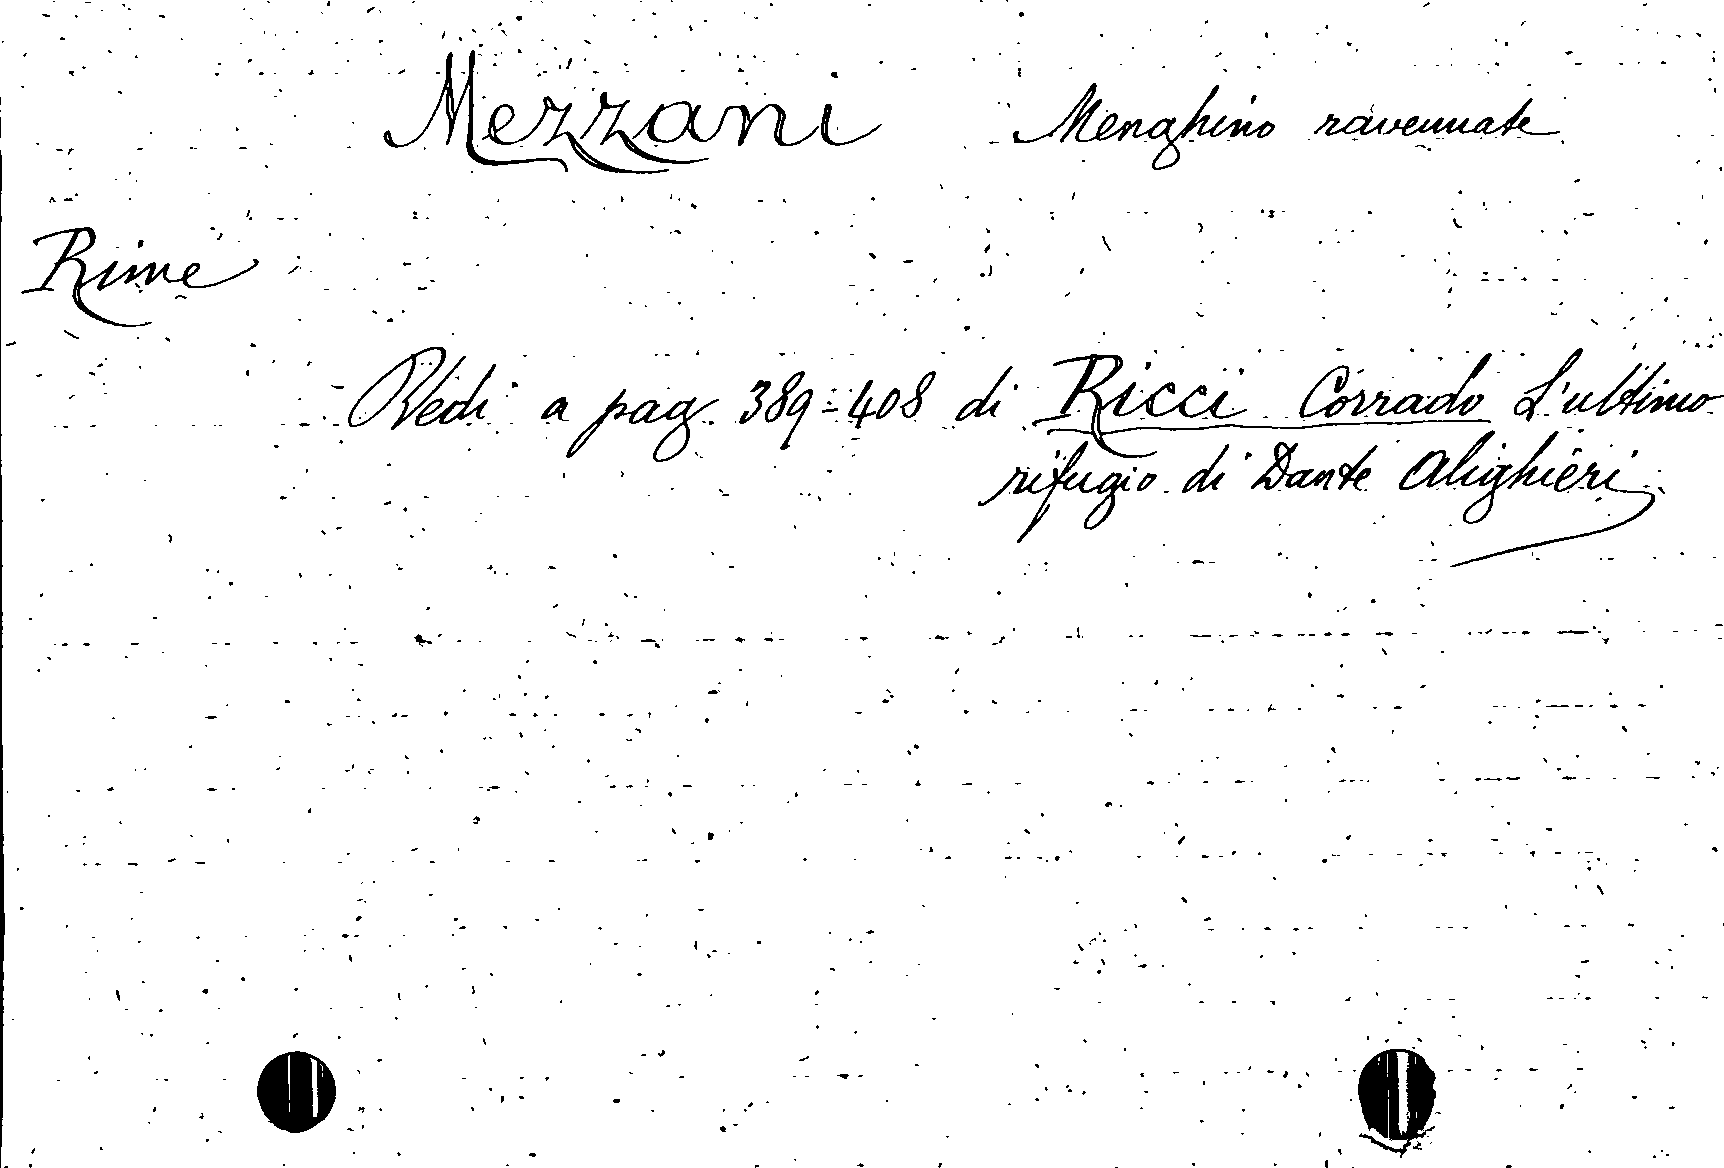 Mezzani Menghino ravennate
Rime
Vedi a pag. 389-408 di Ricci Corrado L'ultimo
rifugio di Dante Alighieri